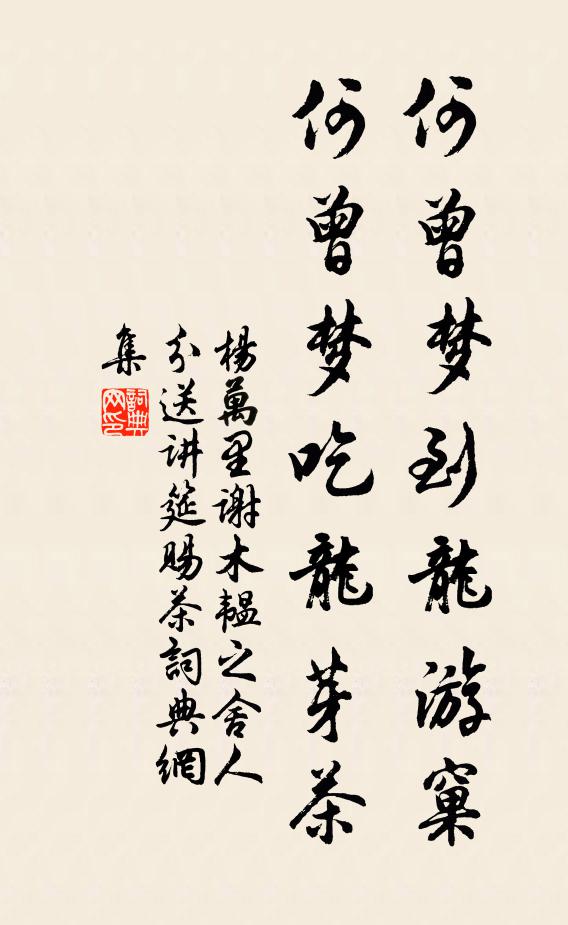 何曾梦到龍游窠
何曾梦吃龍芽茶
楊萬里谢木韞之舍人
分送讲筵賜茶詞典網
集
詞典
网印